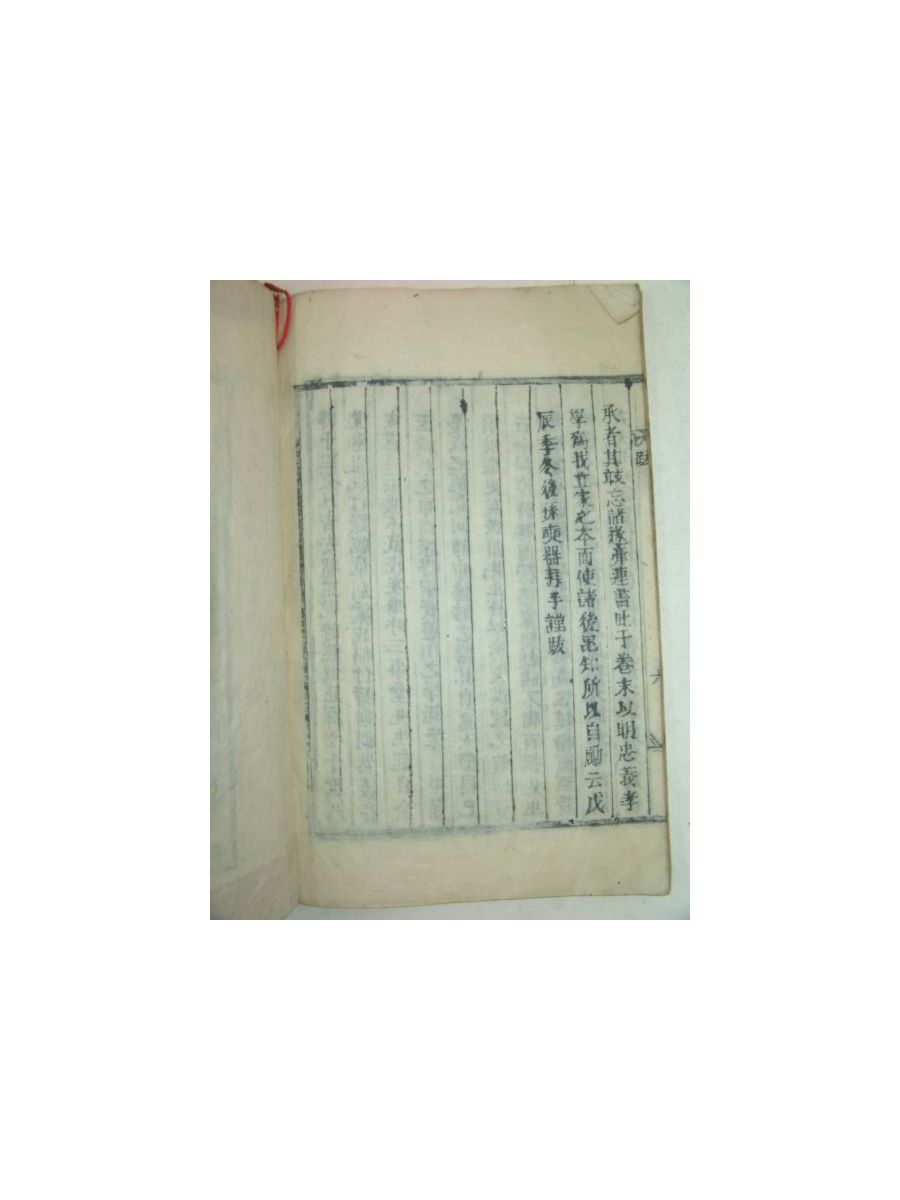 承者其敢忘諸遂壽連書此于卷末以明忠義孝
學爲我立家之本而使諸後昆知所以自勵云戊
辰季冬後孫奭器拜手謹跋
跋
六